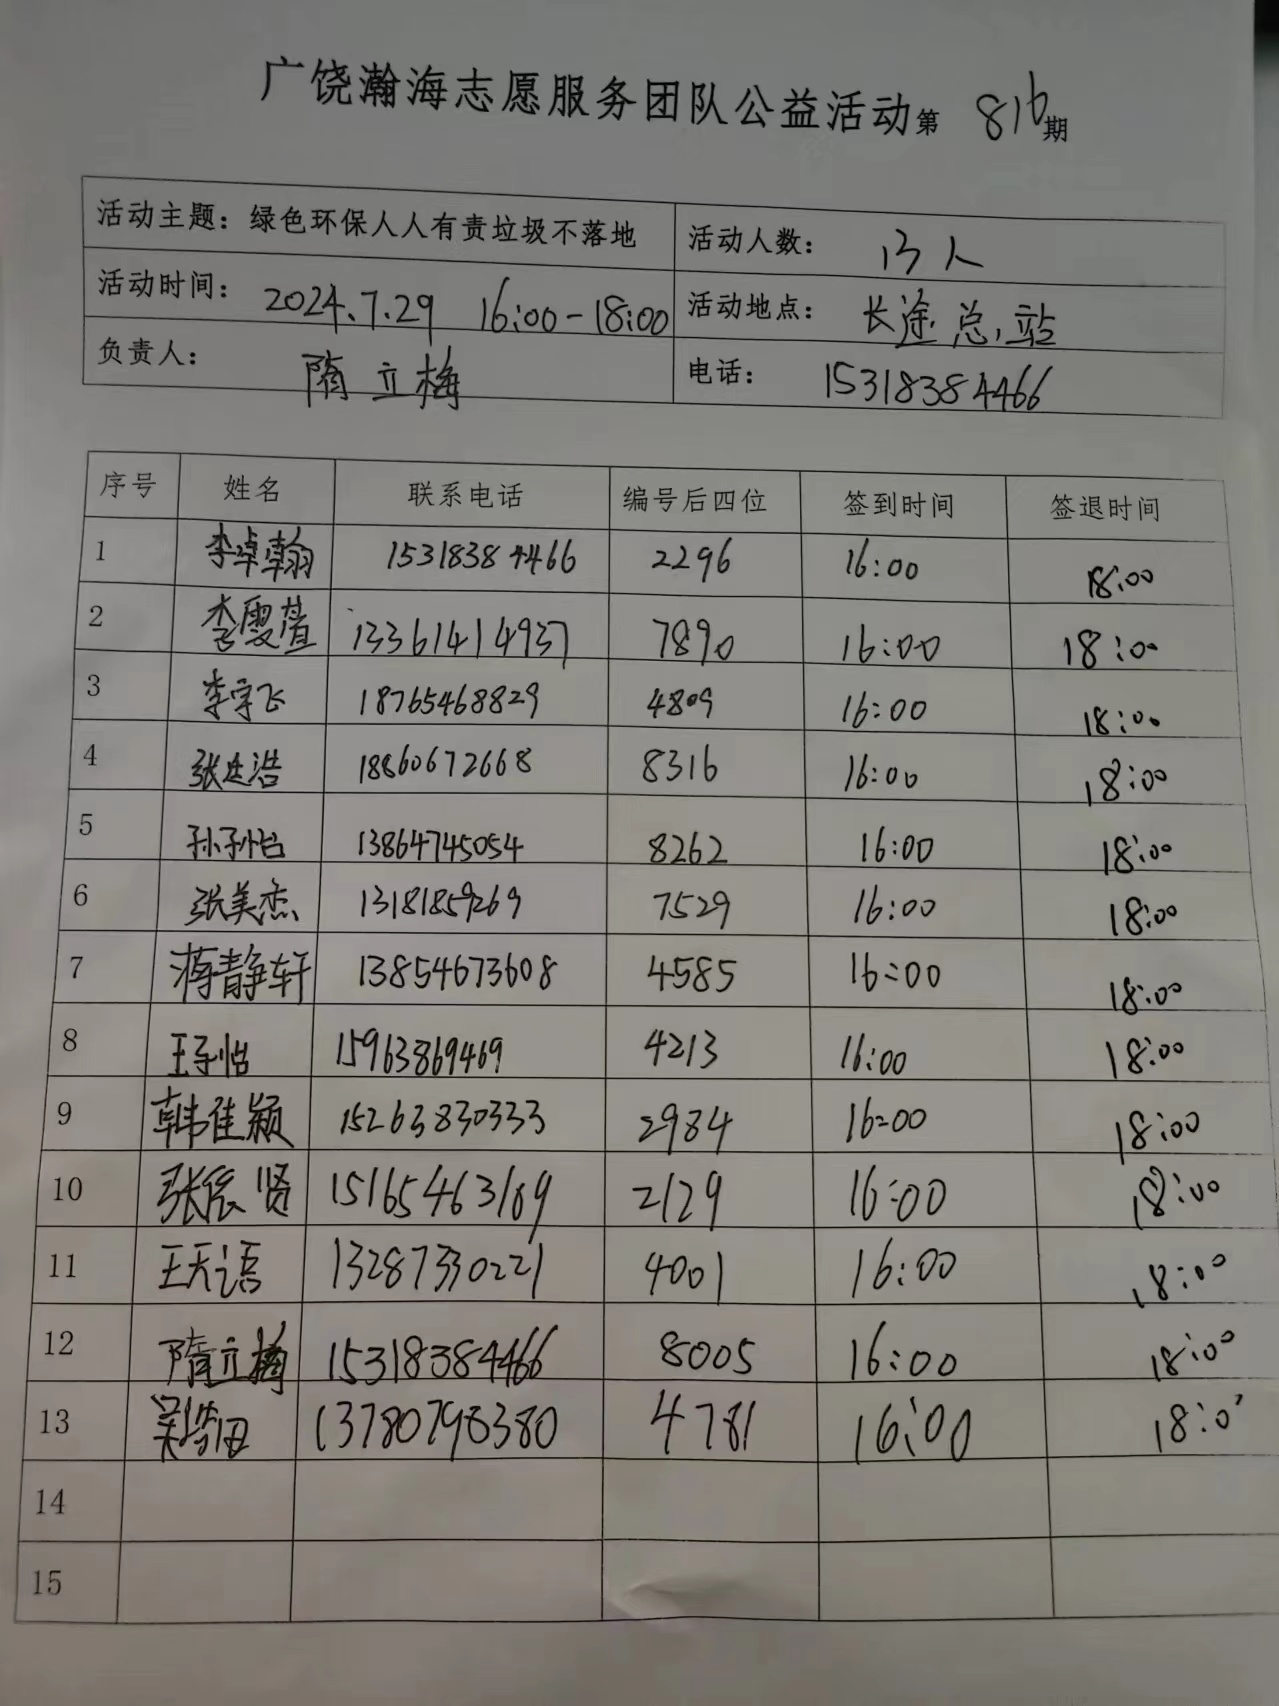 广饶瀚海志愿服务团队公益活动第 816 期
活动主题：绿色环保人人有责垃圾不落地 活动人数： 13人
活动时间： 2024.7.29 16:00-18:00 活动地点： 长途总站
负责人： 隋立梅 电话： 15318384466
序号 姓名 联系电话 编号后四位 签到时间 签退时间
1 李卓翰 15318384466 2296 16:00 18:00
2 李雯萱 13361414937 7890 16:00 18:00
3 李宇飞 18765468829 4809 16:00 18:00
4 张廷浩 18860672668 8316 16:00 18:00
5 孙子怡 13864745054 8262 16:00 18:00
6 张美杰 13181859269 7529 16:00 18:00
7 蒋静轩 13854673608 4585 16:00 18:00
8 王子怡 15963869469 4213 16:00 18:00
9 韩佳颖 15263830333 2984 16:00 18:00
10 张辰贤 15165463169 2129 16:00 18:00
11 王天语 13287330221 4001 16:00 18:00
12 隋立梅 15318384466 8005 16:00 18:00
13 13780798380 4781 16:00 18:00
14
15